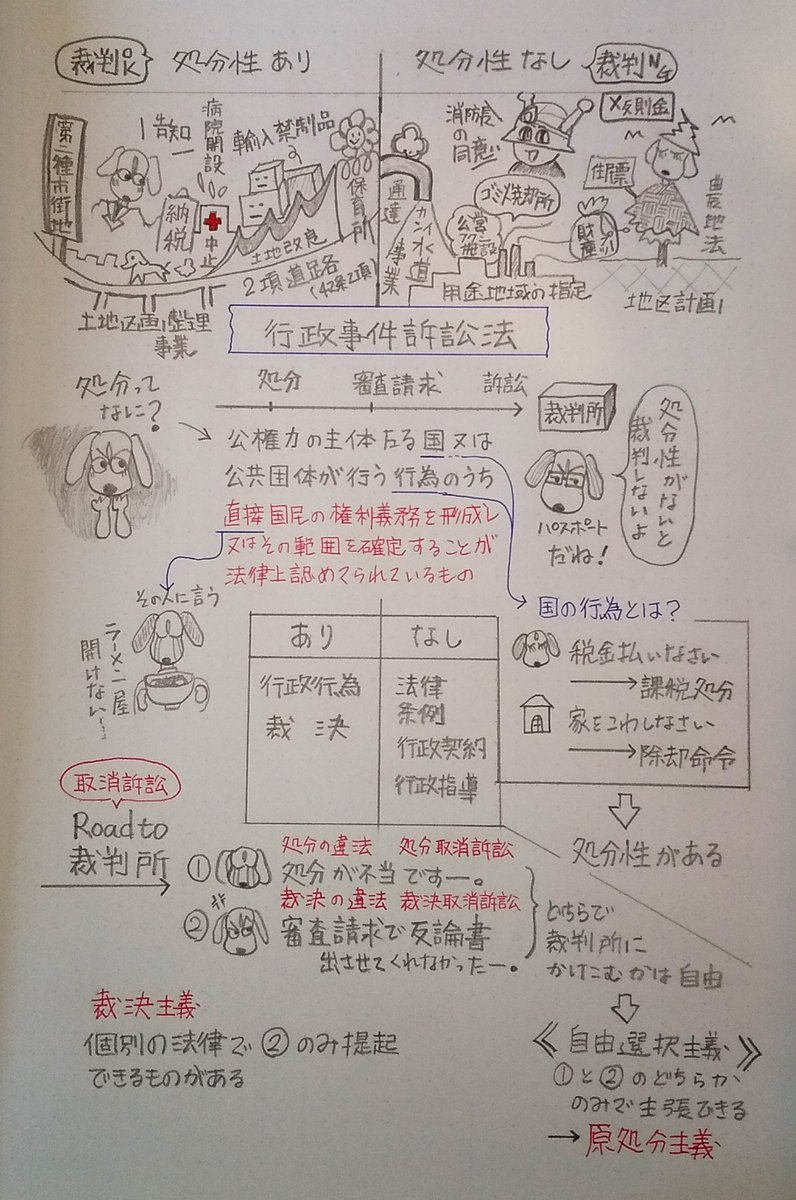 裁判OK
処分性 あり
処分性 なし
裁判NG
第二種市街地
告知
納税
病院開設
中止
輸入禁制品
土地改良
保育所
2項道路
(42条2項)
土地区画整理
事業
通達
カンイ水道
事業
消防長
の同意
ゴミ焼却所
公営
施設
用途地域の指定
反則金
住民票
農地法
地区計画
行政事件訴訟法
処分って
なに?
処分 審査請求 訴訟
裁判所
処分性がないと
裁判しないよ
パスポート
だね!
公権力の主体たる国又は
公共団体が行う行為のうち
直接国民の権利義務を形成し
又はその範囲を確定することが
法律上認めてられているもの
その人に言う
ラーメン屋
開けない…
あり なし
行政行為
裁決
法律
条例
行政契約
行政指導
国の行為とは?
税金払いなさい
→課税処分
家をこわしなさい
→除却命令
処分性がある
取消訴訟
Road to
裁判所
処分の違法 処分取消訴訟
① 処分が不当ですー。
裁決の違法 裁決取消訴訟
② 審査請求で反論書
出させてくれなかったー。
どちらで
裁判所に
かけこむかは自由
裁決主義
個別の法律で②のみ提起
できるものがある
《自由選択主義》
①と②のどちらか
のみで主張できる
→原処分主義